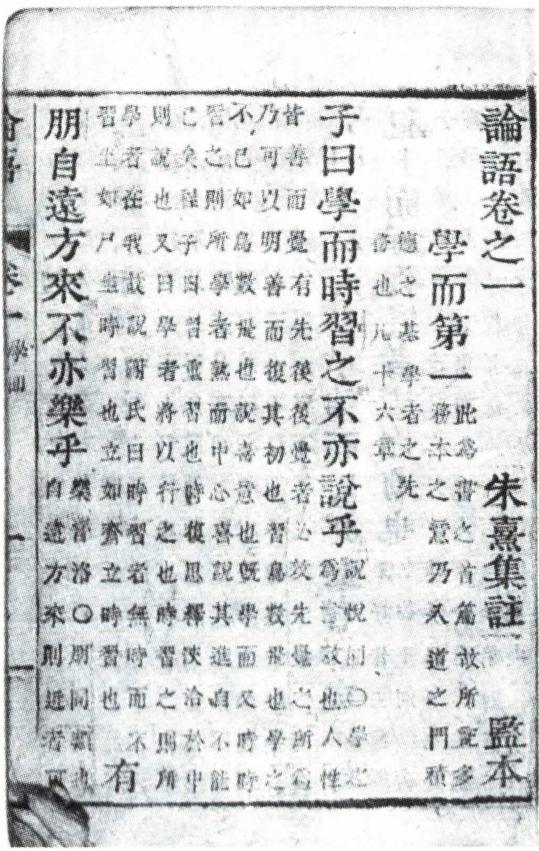 論語卷之一 朱熹集註 監本
學而第一
此為書之首篇故所記多
務本之意乃入道之門積
德之基學者之先
務也凡十六章
子曰學而時習之不亦說乎
說悅同○學之
為言效也人性
皆善而覺有先後後覺者必效先覺之所為
乃可以明善而復其初也習鳥數飛也學之
不已如鳥數飛也說喜意也既學而又時時
習之則所學者熟而中心喜說其進自不能
已矣程子曰習重習也時復思繹浹洽於中
則說也又曰學者將以行之也時習之則所
學者在我故說謝氏曰時習者無時而不
習坐如尸坐時習也立如齊立時習也
有
朋自遠方來不亦樂乎
樂音洛○朋同類也
自遠方來則近者可
語 卷一 學而